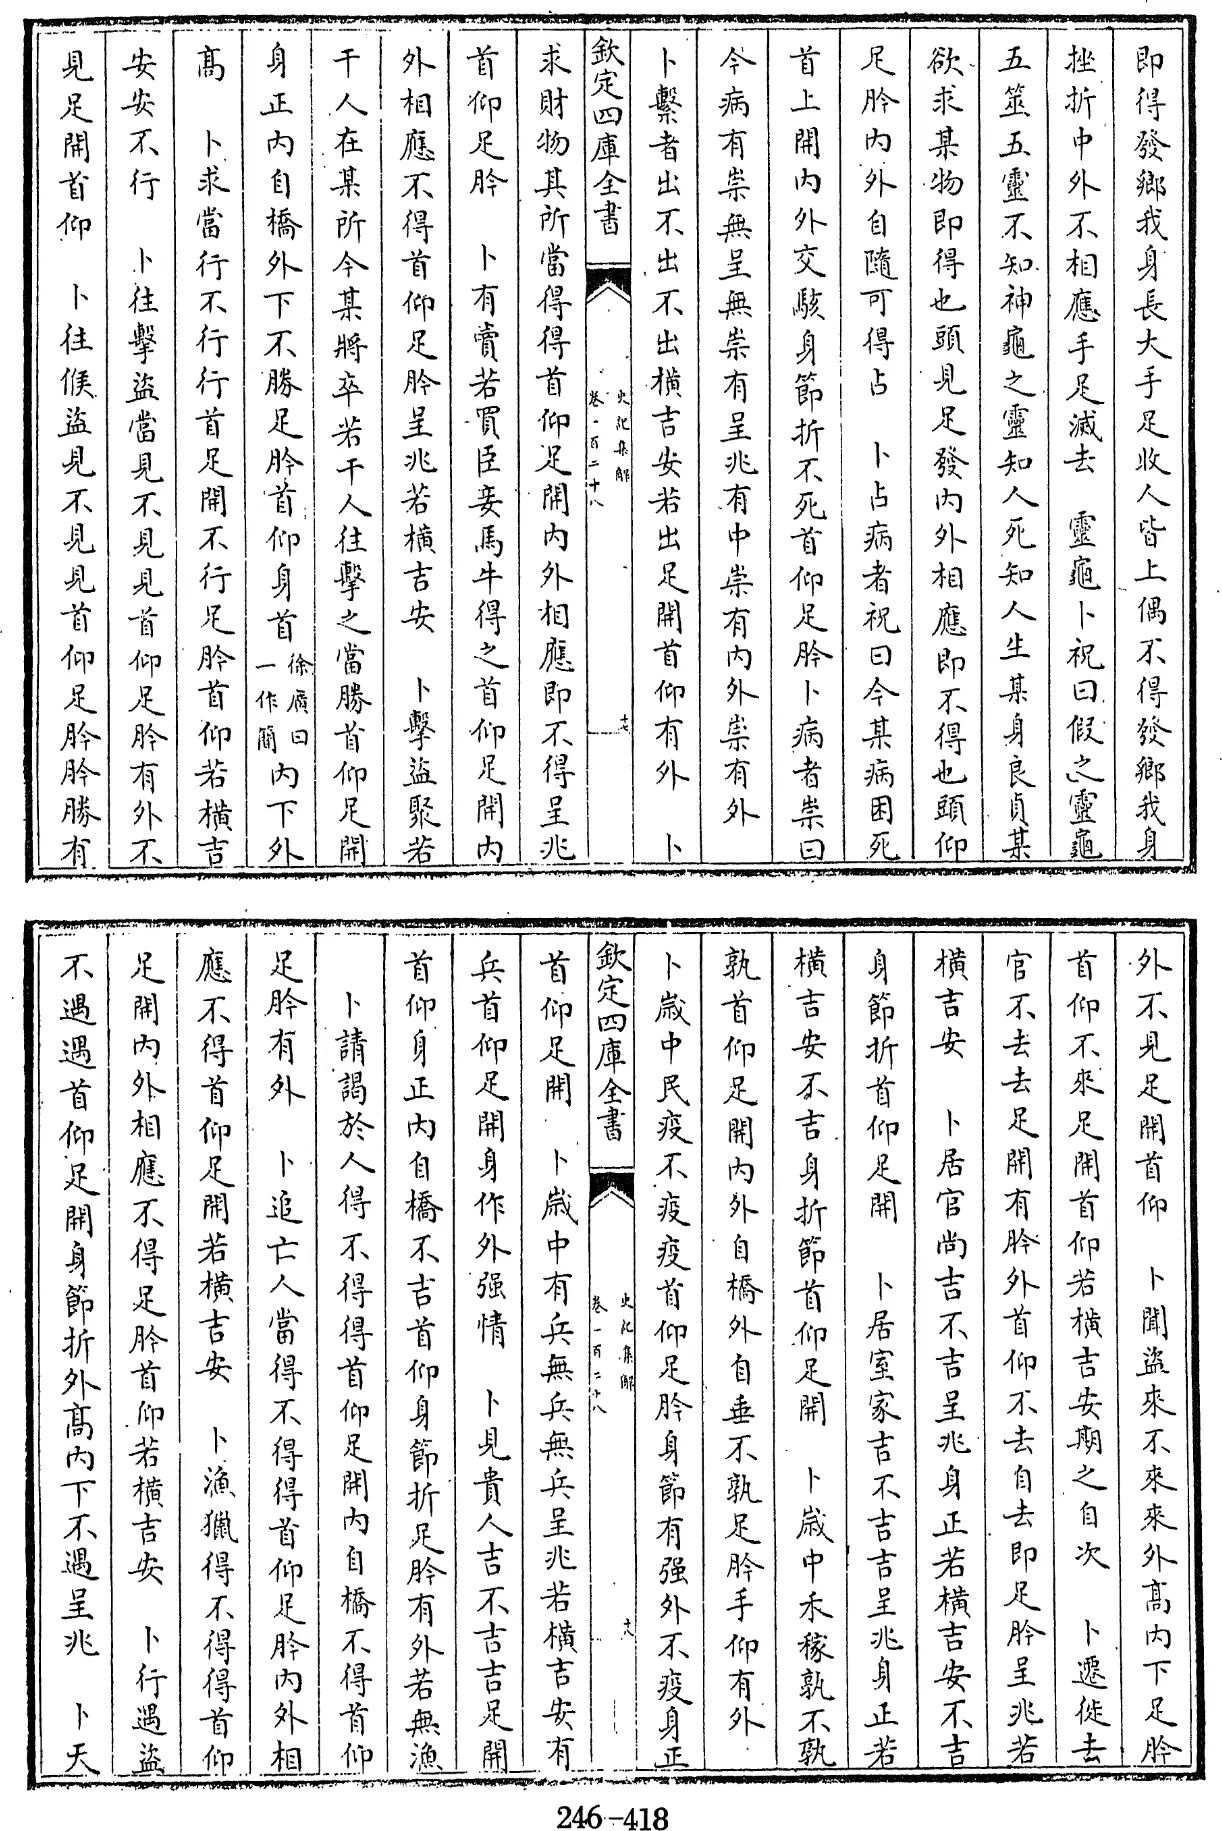 即得發鄉我身長大手足收人皆上偶不得發鄉我身
挫折中外不相應手足滅去　靈龜卜祝曰假之靈龜
五筮五靈不知神龜之靈知人死知人生某身良貞某
欲求某物即得也頭見足發内外相應即不得也頭仰
足肣内外自隨可得占　卜占病者祝曰今某病困死
首上開内外交駭身節折不死首仰足肣卜病者祟曰
今病有祟無呈無祟有呈兆有中祟有内外祟有外
卜繫者出不出不出横吉安若出足開首仰有外　卜
欽定四庫全書
史記集解
卷一百二十八
十七
求財物其所當得得首仰足開内外相應即不得呈兆
首仰足肣　卜有賣若買臣妾馬牛得之首仰足開内
外相應不得首仰足肣呈兆若横吉安　卜擊盜聚若
干人在某所今某將卒若干人往擊之當勝首仰足開
身正内自橋外下不勝足肣首仰身首徐廣曰一作簡内下外
高　卜求當行不行行首足開不行足肣首仰若横吉
安安不行　卜往擊盜當見不見見首仰足肣有外不
見足開首仰　卜往候盜見不見見首仰足肣肣勝有
外不見足開首仰　卜聞盜來不來來外高内下足肣
首仰不來足開首仰若横吉安期之自次　卜遷徙去
官不去去足開有肣外首仰不去自去即足肣呈兆若
横吉安　卜居官尚吉不吉呈兆身正若横吉安不吉
身節折首仰足開　卜居室家吉不吉吉呈兆身正若
横吉安不吉身折節首仰足開　卜歲中禾稼孰不孰
孰首仰足開内外自橋外自垂不孰足肣手仰有外
卜歲中民疫不疫疫首仰足肣身節有强外不疫身正
欽定四庫全書
史記集解
卷一百二十八
十八
首仰足開　卜歲中有兵無兵無兵呈兆若横吉安有
兵首仰足開身作外强情　卜見貴人吉不吉吉足開
首仰身正内自橋不吉首仰身節折足肣有外若無漁
卜請謁於人得不得得首仰足開内自橋不得首仰
足肣有外　卜追亡人當得不得得首仰足肣内外相
應不得首仰足開若横吉安　卜漁獵得不得得首仰
足開内外相應不得足肣首仰若横吉安　卜行遇盜
不遇遇首仰足開身節折外高内下不遇呈兆　卜天
246-418